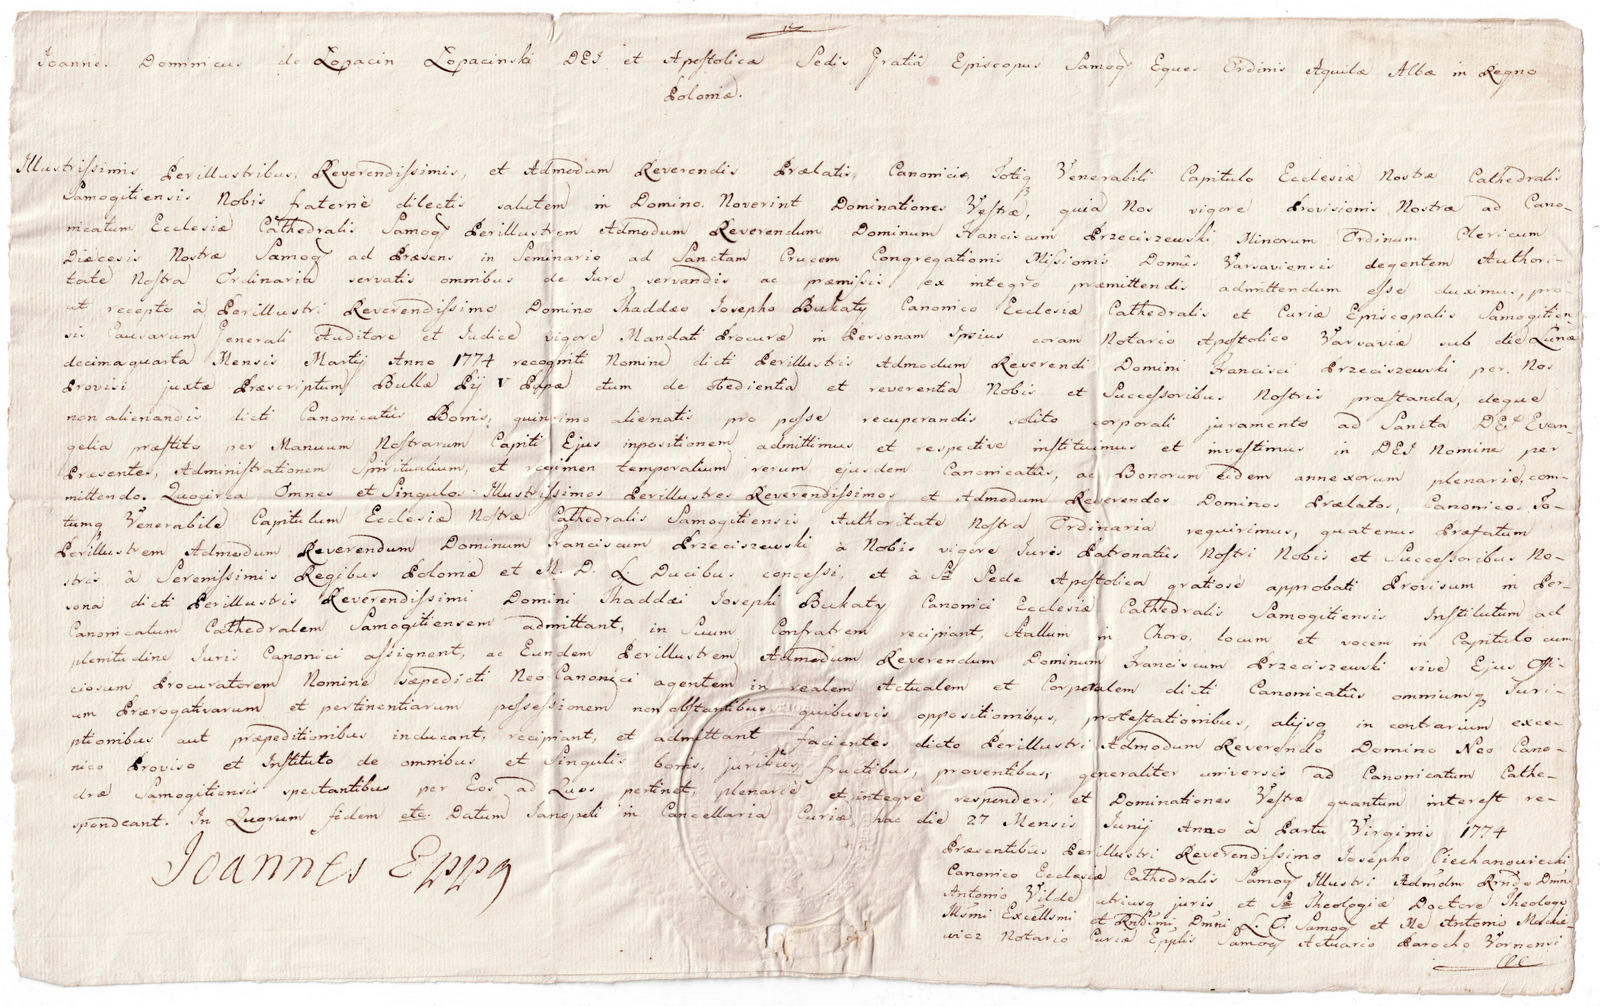 Joannes Dominicus de Łopacin Łopacinski DEI et Apostolicæ Sedis Gratiâ Episcopus Samogq Eques Ordinis Aquilæ Albæ in Regno
Poloniæ.
Illustrissimis Perillustribus, Reverendissimis, et Admodum Reverendis Prælatis, Canonicis, Totiq Venerabili Capitulo Ecclesiæ Nostræ Cathedralis
Samogitiensis Nobis fraternè dilectis salutem in Domino. Noverint Dominationes Vestræ, quia Nos vigore Provisionis Nostræ ad Cano-
nicatum Ecclesiæ Cathedralis Samogq Perillustrem Admodum Reverendum Dominum Franciscum Przeciszewski Minorum Ordinum Clericum
Diæcesis Nostræ Samogq ad Præsens in Seminario ad Sanctam Crucem Congregationis Missionis Domûs Varsaviensis degentem Authori-
tate Nostra Ordinaria servatis omnibus de Jure servandis ac præmissis ex integro præmittendis admittendum esse duximus, pro-
ut recepto à Perillustri Reverendissimo Domino Thaddæo Josepho Bukaty Canonico Ecclesiæ Cathedralis et Curiæ Episcopalis Samogitien-
sis Causarum Generali Auditore et Judice vigore Mandati Procuræ in Personam Ipsius coram Notario Apostolico Varsaviæ sub die Lunæ
decimaquarta Mensis Martij Anno 1774 recogniti Nomine dicti Perillustris Admodum Reverendi Domini Francisci Przeciszewski per Nos
Provisi juxta Præscriptum Bullæ Pij V Papæ tum de obedientia et reverentia Nobis, et Successoribus Nostris præstanda, deque
non alienandis dicti Canonicatûs Bonis, quinimo alienatis pro posse recuperandis solito corporali juramento ad Sancta DEI Evan-
gelia præstito per Manuum Nostrarum Capiti Ejus inpositionem admittimus et respective instituimus et investimus in DEI Nomine per
Præsentes, Administrationem Spiritualium, et regimen temporalium rerum ejusdem Canonicatûs, ac Bonorum eidem annexorum plenariè, com-
mittendo. Quocirca Omnes et Singulos Illustrissimos Perillustres Reverendissimos et Admodum Reverendos Dominos Prælatos, Canonicos, To-
tumq Venerabile Capitulum Ecclesiæ Nostræ Cathedralis Samogitiensis Authoritate Nostra Ordinaria requirimus, quatenus Præfatum
Perillustrem Admodum Reverendum Dominum Franciscum Przeciszewski à Nobis vigore Juris Patronatûs Nostri Nobis et Successoribus No-
stris à Serenissimis Regibus Poloniæ et M. D. L. Ducibus concessi, et à Sta Sede Apostolica gratiose approbati Provisum in Per-
sona dicti Perillustris Reverendissimi Domini Thaddæi Josephi Bukaty Canonici Ecclesiæ Cathedralis Samogitiensis Institutum ad
Canonicatum Cathedralem Samogitiensem admittant, in Suum Confratrem recipiant, Stallum in Choro, locum et vocem in Capitulo cum
plenitudine Juris Canonici assignent, ac Eundem Perillustrem Admodum Reverendum Dominum Franciscum Przeciszewski sive Ejus Offi-
ciosum Procuratorem Nomine sæpedicti Neo Canonici agentem in realem Actualem et Corporalem dicti Canonicatûs omniumq Juri-
um Prærogativarum et pertinentiarum possessionem non obstantibus quibusvis oppositionibus, protestationibus, alijsq in contrarium exce-
ptionibus aut præpeditionibus inducant, recipiant, et admittant facientes dicto Perillustri Admodum Reverendo Domino Neo Cano-
nico Proviso et Instituto de omnibus et Singulis bonis, juribus, fructibus, proventibus, generaliter universis ad Canonicatum Cathe-
dræ Samogitiensis spectantibus per Eos ad Quos pertinet, plenariè et integrè responderi, et Dominationes Vestræ quantum interest re-
spondeant. In Quorum fidem etc. Datum Janopoli in Cancellaria Curiæ hac die 27 Mensis Junij Anno à Partu Virginis 1774
Joannes Eppq
Præsentibus Perillustri Reverendissimo Josepho Ciechanowiecki
Canonico Ecclesiæ Cathedralis Samogq Illustri Admdm Rndo Dmni
Antonio Wilde utriusq juris et Sæ Theologiæ Doctore Theologo
Illsmi Excellsmi et Rndsimi Dmni L. O. Samogq et Me Antonio
wicz Notario Curiæ Epplis Samogq Actuario Parocho Vornensi